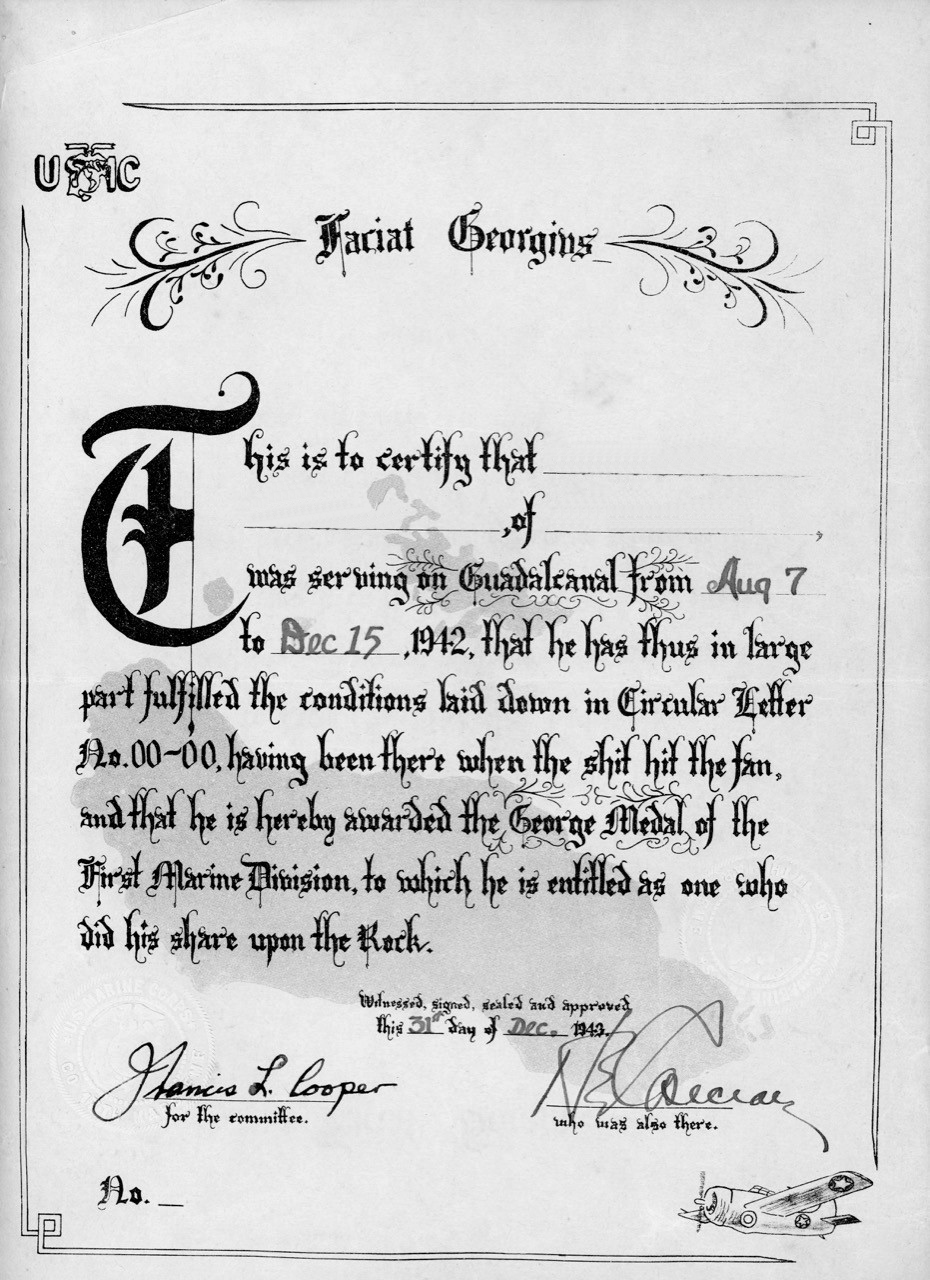 USMC
Faciat Georgius
This is to certify that
, of ,
was serving on Guadalcanal from Aug 7
to Dec 15, 1942, that he has thus in large
part fulfilled the conditions laid down in Circular Letter
No. 00~00, having been there when the shit hit the fan,
and that he is hereby awarded the George Medal of the
First Marine Division, to which he is entitled as one who
did his share upon the Rock.
Witnessed, signed, sealed and approved
this 31st day of Dec. 1943.
Francis L. Cooper
for the committee. who was also there.
No.